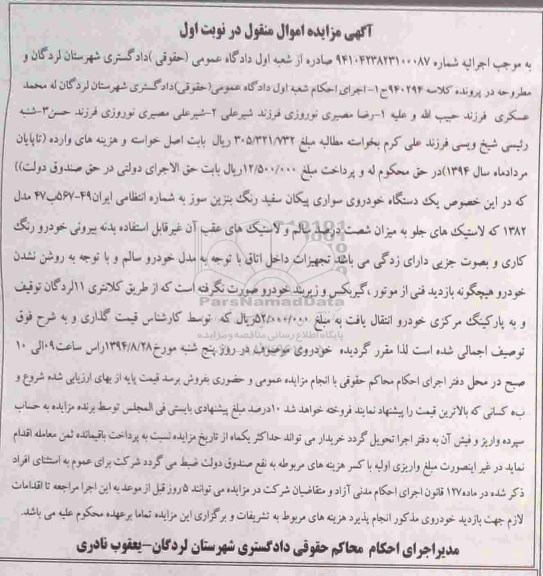 آگهی مزایده اموال منقول در نوبت اول
به موجب اجرائیه شماره ۹۴۱۰۴۲۳۸۲۳۱۰۰۰۸۷ صادره از شعبه اول دادگاه عمومی (حقوقی )دادگستری شهرستان لردگان و
مطروحه در پرونده کلاسه ۹۴۰۲۹۴ح۱- اجرای احکام شعبه اول دادگاه عمومی(حقوقی)دادگستری شهرستان لردگان له محمد
عسکری فرزند حبیب الله و علیه ۱-رضا مصیری نوروزی فرزند شیرعلی ۲-شیرعلی مصیری نوروزی فرزند حسن۳-شنبه
رئیسی شیخ ویسی فرزند علی کرم بخواسته مطالبه مبلغ ۳۰۵/۳۲۱/۷۳۲ ریال بابت اصل خواسته و هزینه های وارده (تاپایان
مردادماه سال ۱۳۹۴)در حق محکوم له و پرداخت مبلغ ۱۲/۵۰۰/۰۰۰ریال بابت حق الاجرای دولتی در حق صندوق دولت))
که در این خصوص یک دستگاه خودروی سواری پیکان سفید رنگ بنزین سوز به شماره انتظامی ایران۴۹-۵۶۷ب۴۷ مدل
۱۳۸۲ که لاستیک های جلو به میزان شصت درصد سالم و لاستیک های عقب آن غیرقابل استفاده بدنه بیرونی خودرو رنگ
کاری و بصوت جزیی دارای زدگی می باشد تجهیزات داخل اتاق با توجه به مدل خودرو سالم و با توجه به روشن نشدن
خودرو هیچگونه بازدید فنی از موتور ،گیربکس و زیربند خودرو صورت نگرفته است که از طریق کلانتری ۱۱لردگان توقیف
و به پارکینگ مرکزی خودرو انتقال یافت به مبلغ ۵۲/۰۰۰/۰۰۰ریال که توسط کارشناس قیمت گذاری و به شرح فوق
توصیف اجمالی شده است لذا مقرر گردیده خودروی موصوف در روز پنج شنبه مورخ۱۳۹۴/۸/۲۸راس ساعت۰۹الی ۱۰
صبح در محل دفتر اجرای احکام محاکم حقوقی با انجام مزایده عمومی و حضوری بفروش برسد قیمت پایه از بهای ارزیابی شده شروع و
به کسانی که بالاترین قیمت را پیشنهاد نمایند فروخته خواهد شد ۱۰درصد مبلغ پیشنهادی بایستی فی المجلس توسط برنده مزایده به حساب
سپرده واریز و فیش آن به دفتر اجرا تحویل گردد خریدار می تواند حداکثر یکماه از تاریخ مزایده نسبت به پرداخت باقیمانده ثمن معامله اقدام
نماید در غیر اینصورت مبلغ واریزی اولیه با کسر هزینه های مربوطه به نفع صندوق دولت ضبط می گردد شرکت برای عموم به استثنای افراد
ذکر شده در ماده۱۲۷ قانون اجرای احکام مدنی آزاد و متقاضیان شرکت در مزایده می توانند ۵روز قبل از موعد به این اجرا مراجعه تا اقدامات
لازم جهت بازدید خودروی مذکور انجام پذیرد هزینه های مربوط به تشریفات و برگزاری این مزایده تماما برعهده محکوم علیه می باشد.
مدیراجرای احکام محاکم حقوقی دادگستری شهرستان لردگان-یعقوب نادری
ParsNamadData
پایگاه اطلاع رسانی مناقصه و مزایده